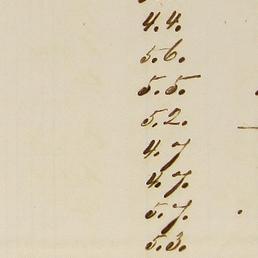 4.4.
5.6.
5.5.
5.2.
4.7
4.7.
5.7.
5.3.